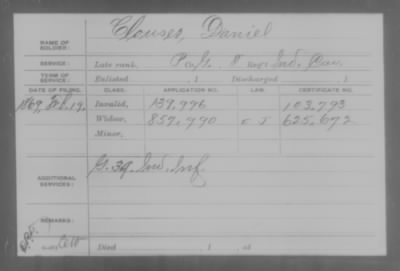 NAME OF SOLDIER: Clouser, Daniel
SERVICE: Late rank, P Co. G, 8 Reg't Ind. Cav.
TERM OF SERVICE: Enlisted , 1 Discharged , 1
DATE OF FILING. CLASS. APPLICATION NO. LAW. CERTIFICATE NO.
1869, Feb. 19. Invalid, 139,996 103,793
Widow, 857,790 625,672
Minor,
ADDITIONAL SERVICES: G. 39. Ind. Inf.
REMARKS:
Died , 1 , at